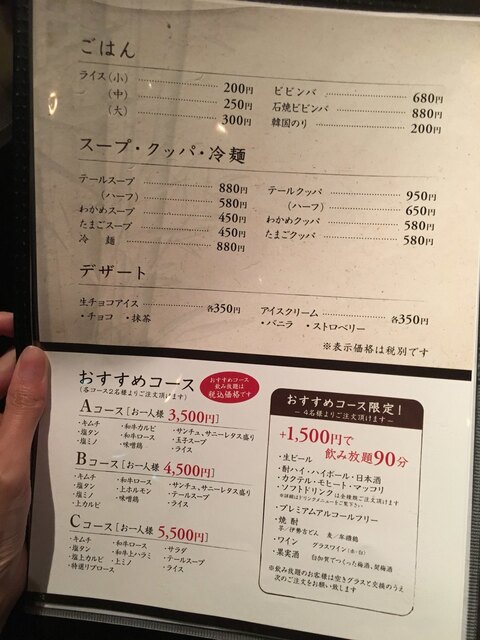 ごはん
ライス(小) 200円
(中) 250円
(大) 300円
ビビンバ 680円
石焼ビビンバ 880円
韓国のり 200円
スープ・クッパ・冷麺
テールスープ 880円
(ハーフ) 580円
わかめスープ 450円
たまごスープ 450円
冷麺 880円
テールクッパ 950円
(ハーフ) 650円
わかめクッパ 580円
たまごクッパ 580円
デザート
生チョコアイス 各350円
・チョコ ・抹茶
アイスクリーム 各350円
・バニラ ・ストロベリー
※表示価格は税別です
おすすめコース
(各コース2名様よりご注文頂けます)
おすすめコース
飲み放題は
税込価格です
Aコース[お一人様 3,500円]
・キムチ ・和牛カルビ ・サンチュ、サニーレタス盛り
・塩タン ・和牛ロース ・玉子スープ
・塩ミノ ・味噌鶏 ・ライス
Bコース[お一人様 4,500円]
・キムチ ・和牛ロース ・サンチュ、サニーレタス盛り
・塩タン ・上ホルモン ・テールスープ
・塩ミノ ・味噌鶏 ・ライス
・上カルビ
Cコース[お一人様 5,500円]
・キムチ ・和牛ロース ・サラダ
・塩タン ・和牛上ハラミ ・テールスープ
・塩上カルビ ・上ミノ ・ライス
・特選リブロース
おすすめコース限定!
― 4名様よりご注文頂けます ―
+1,500円で
飲み放題90分
・生ビール
・酎ハイ・ハイボール・日本酒
・カクテル・モヒート・マッコリ
・ソフトドリンクは全種類ご注文頂けます
※詳細はドリンクメニューをご覧下さい
・プレミアムアルコールフリー
・焼酎
芋/伊勢吉どん 麦/年輪鶴
・ワイン グラスワイン(赤・白)
・果実酒 自加賀でつくった梅酒、梨梅酒
※飲み放題のお客様は空きグラスと交換のうえ
次のご注文をお願い致します